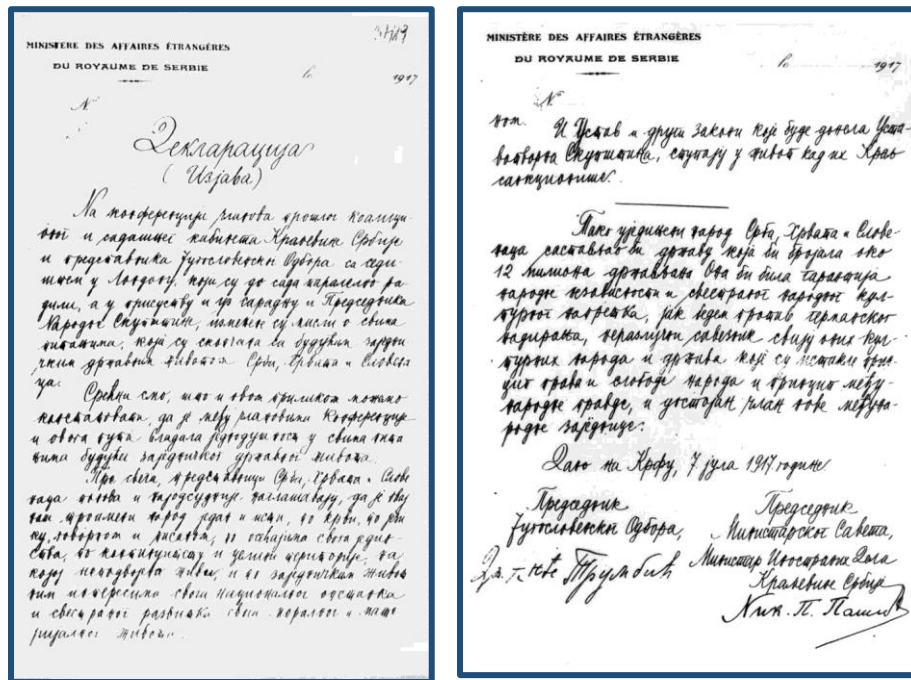 MINISTÈRE DES AFFAIRES ÉTRANGÈRES
DU ROYAUME DE SERBIE
le 1917
N
Декларација
(Изјава)
На конференцији чланова прошлог коалици-
оног и садашњег кабинета Краљевине Србије
и представника Југословенског Одбора са седи-
штем у Лондону, који су до сада паралелно ра-
дили, а у присуству и уз сарадњу и Председника
Народне Скупштине, измењене су мисли о свима
питањима, која су скопчана са будућим зајед-
ничким државним животом Срба, Хрвата и Словена-
ца.
Срећни смо, што и овом приликом можемо
констатовати, да је међу члановима Конференције
и овога пута владала једнодушност у свима пита-
њима будућег заједничког државног живота.
Пре свега, представници Срба, Хрвата и Слове-
наца понова и најодсудније наглашавају, да је овај
наш троимени народ један и исти, по крви, по јези-
ку, говорном и писаном, по осећајима свога једин-
ства, по континуитету и целини територије, на
којој неподвојено живи, и по заједничким живот-
ним интересима свога националног опстанка
и свестраног развитка свога моралног и мате-
ријалног живота.
MINISTÈRE DES AFFAIRES ÉTRANGÈRES
DU ROYAUME DE SERBIE
le 1917
N
ном. И Устав и други закони које буде донела Уста-
вотворна Скупштина, ступају у живот кад их Краљ
санкционише.
Тако уједињени народ Срба, Хрвата и Слове-
наца састављао би државу која би бројала око
12 милиона држављана. Она би била гарантија
народне независности и свестраног народног кул-
турног напретка, јак бедем против германског
надирања, неразлучни савезник свију оних кул-
турних народа и држава које су истакле прин-
цип права и слободе народа и принцип међу-
народне правде, и достојан члан нове међуна-
родне заједнице.
Дано на Крфу, 7 јула 1917. године
Председник
Југословенског Одбора,
Др. Анте Трумбић
Председник
Министарског Савета,
Министар Иностраних Дела
Краљевине Србије
Ник. П. Пашић